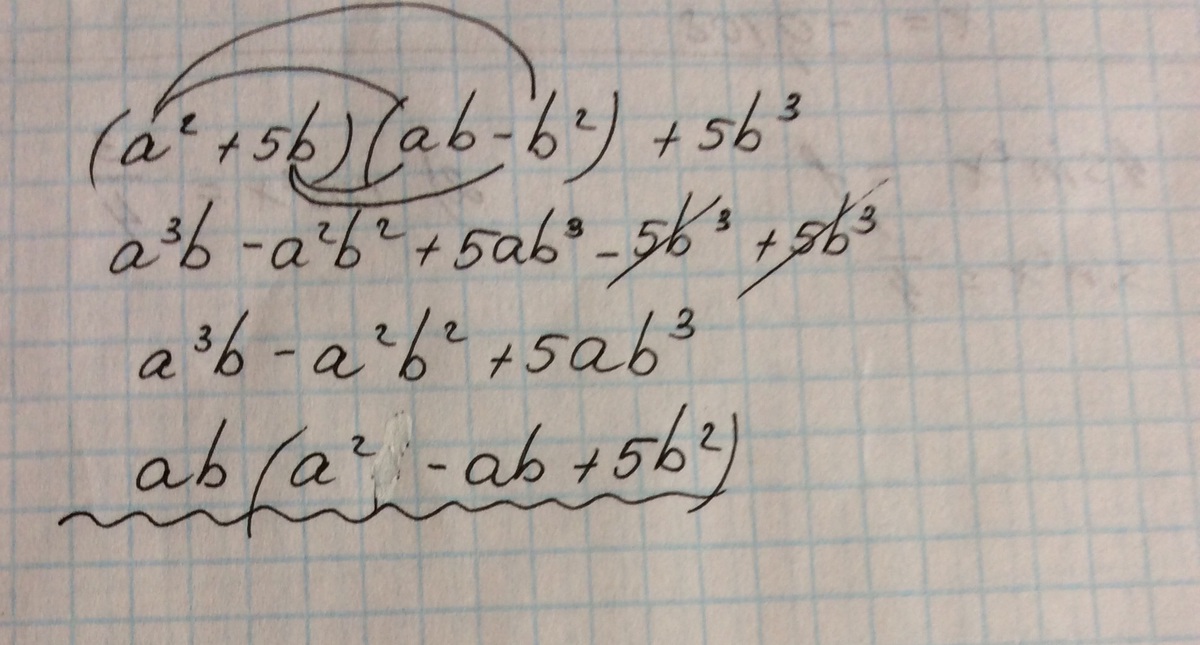 (a² + 5b)(ab - b²) + 5b³
a³b - a²b² + 5ab³ - 5b³ + 5b³
a³b - a²b² + 5ab³
ab(a² - ab + 5b²)